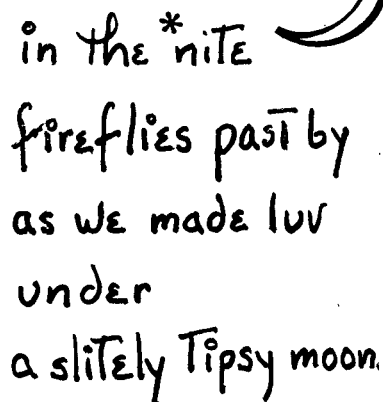 in the *nite
fireflies past by
as we made luv
under
a slitely Tipsy moon.